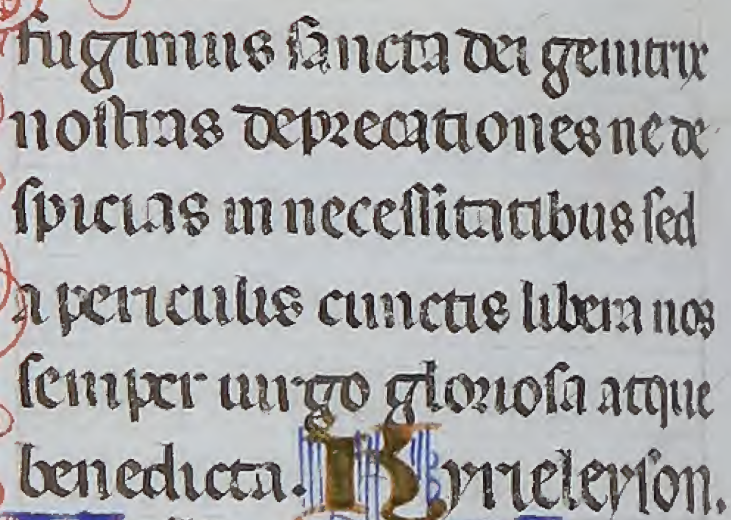 fugimus sancta dei genitrix
nostras deprecationes ne de
spicias in necessitatibus sed
a periculis cunctis libera nos
semper uirgo gloriosa atque
benedicta. Kyrieleyson.